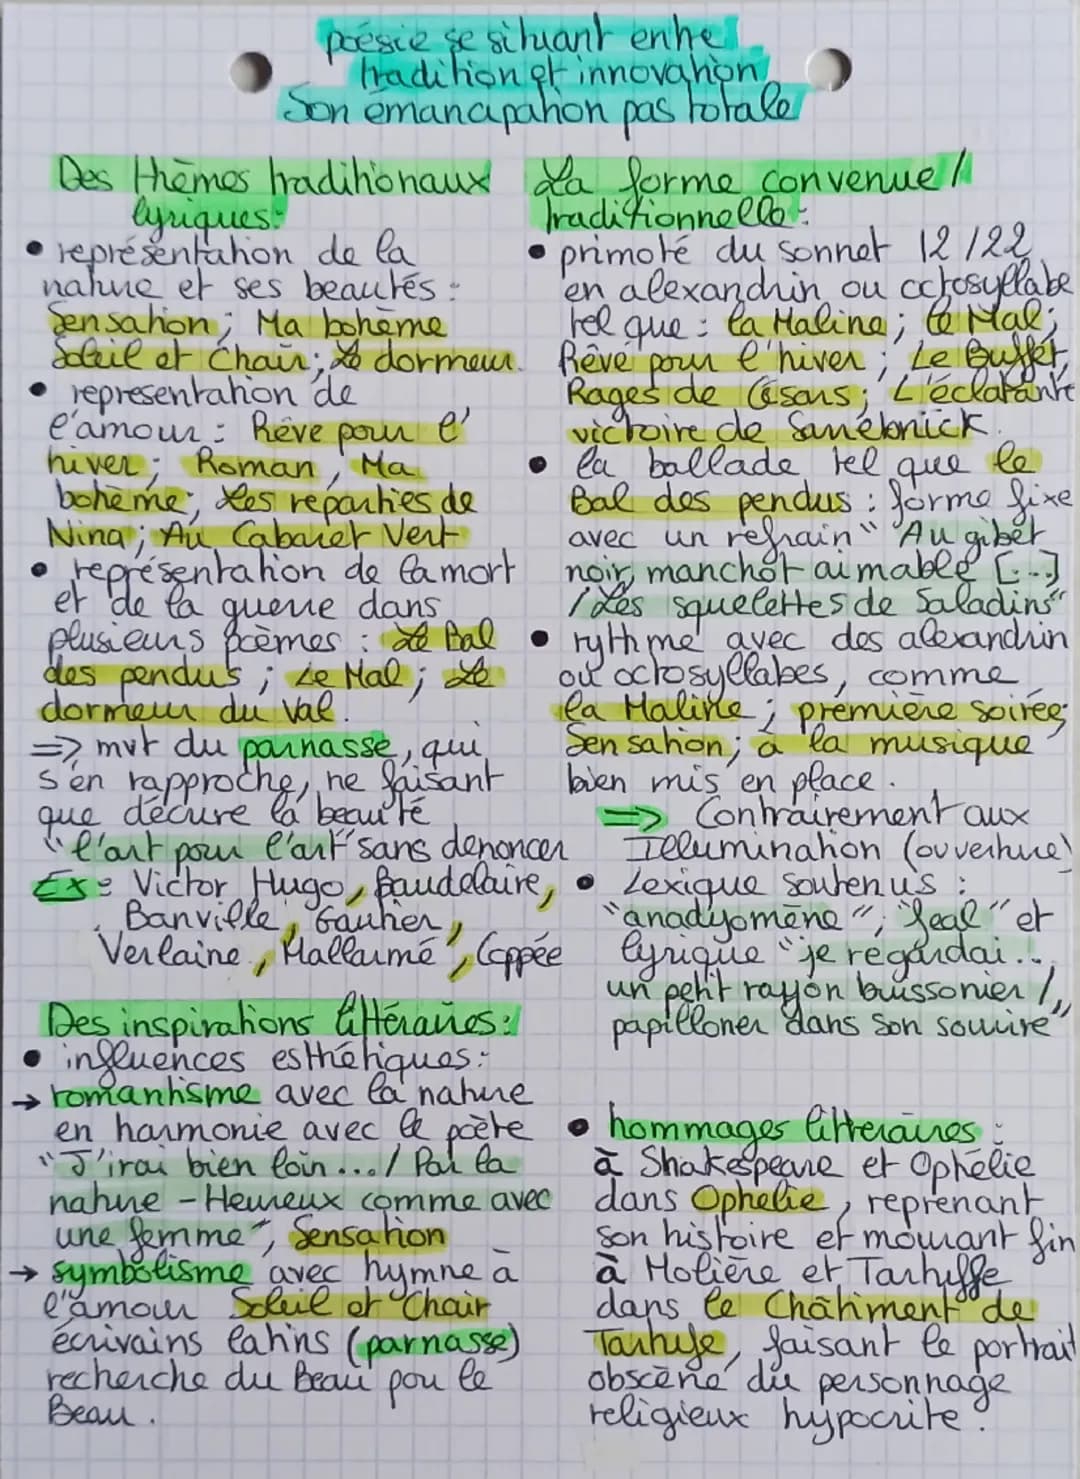 poésie se situant entre
tradition et innovation
Son émancipation pas totale
Des thèmes traditionaux
lyriques:
• représentation de la
nature et ses beautés :
Sensation ; Ma bohème
Soleil et Chair ; Le dormeur.
• representation de
l'amour : Rêve pour l'
hiver ; Roman , Ma
bohème ; Les reparties de
Nina ; Au Cabaret Vert
• représentation de la mort
et de la guerre dans
plusieurs poèmes : Le Bal
des pendus ; Le Mal ; Le
dormeur du Val.
=> mvt du parnasse, qui
s'en rapproche, ne faisant
que décrire la beauté
"l'art pour l'art" sans dénoncer
Ex : Victor Hugo, Baudelaire,
Banville, Gautier,
Verlaine, Mallarmé, Coppée
Des inspirations littéraires :
• influences esthétiques :
→ romantisme avec la nature
en harmonie avec le poète
"J'irai bien loin... / Par la
nature - Heureux comme avec
une femme", Sensation
→ symbolisme avec hymne à
l'amour Soleil et Chair
écrivains latins (parnasse)
recherche du Beau pou le
Beau.
La forme convenue /
traditionnelle :
• primoté du sonnet 12/22
en alexandrin ou octosyllabe
tel que : la Maline ; le Mal ;
Rêvé pour l'hiver ; Le Buffet,
Rages de Césars ; L'éclatante
victoire de Sarrebrück.
• la ballade tel que le
Bal des pendus : forme fixe
avec un refrain " Au gibet
noir, manchot aimable [...]
/ Les squelettes de Saladins"
• rythme avec des alexandrin
ou octosyllabes, comme
la Maline ; première soirée ;
Sensation ; à la musique
bien mis en place.
=> Contrairement aux
Illumination (ouverture)
• Lexique soutenus :
"anadyomène" ; "feal" et
lyrique "je regardai..
un petit rayon buissonier /
papilloner dans son sourire"
• hommages littéraires :
à Shakespeare et Ophélie
dans Ophelie, reprenant
son histoire et mourant fin
à Molière et Tartuffe
dans le Châtiment de
Tartufe, faisant le portrait
obscène du personnage
religieux hypocrite.